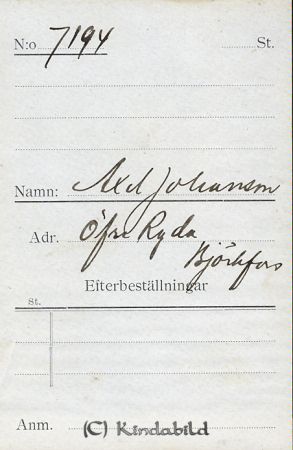 N:o 7194 St.
Namn: Axel Johanson
Adr. Öfre Ryda
Björkfors
Efterbeställningar
st.
Anm.
(C) Kindabild